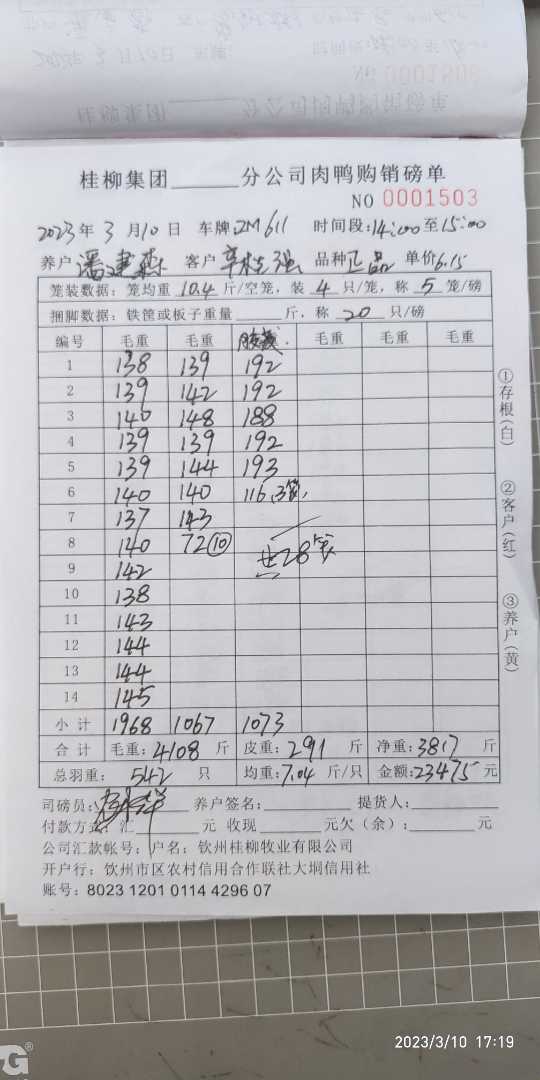 桂柳集团______分公司肉鸭购销磅单
NO 0001503
2023年 3 月10 日 车牌:2M611 时间段:14:00至15:00
养户 潘建森 客户 强 品种 正品 单价6.15
笼装数据: 笼均重 10.4 斤/空笼, 装 4 只/笼, 称 5 笼/磅
捆脚数据: 铁筐或板子重量______斤, 称 20 只/磅
编号 毛重 毛重 毛重 毛重 毛重
1 138 139 192
2 139 142 192
3 140 148 188
4 139 139 192
5 139 144 193
6 140 140 116.3笼.
7 137 143
8 140 72⑩ 共28笼
9 142
10 138
11 143
12 144
13 144
14 145
小 计 1968 1067 1073
合 计 毛重: 4108 斤 皮重: 291 斤 净重: 3817 斤
总羽重: 542 只 均重: 7.04 斤/只 金额: 23475 元
司磅员: 养户签名:______ 提货人:______
付款方式: 汇______元 收现______元欠(余):______元
公司汇款帐号: 户名: 钦州桂柳牧业有限公司
开户行: 钦州市区农村信用合作联社大垌信用社
账号: 8023 1201 0114 4296 07
①存根(白)
②客户(红)
③养户(黄)
2023/3/10 17:19
G®